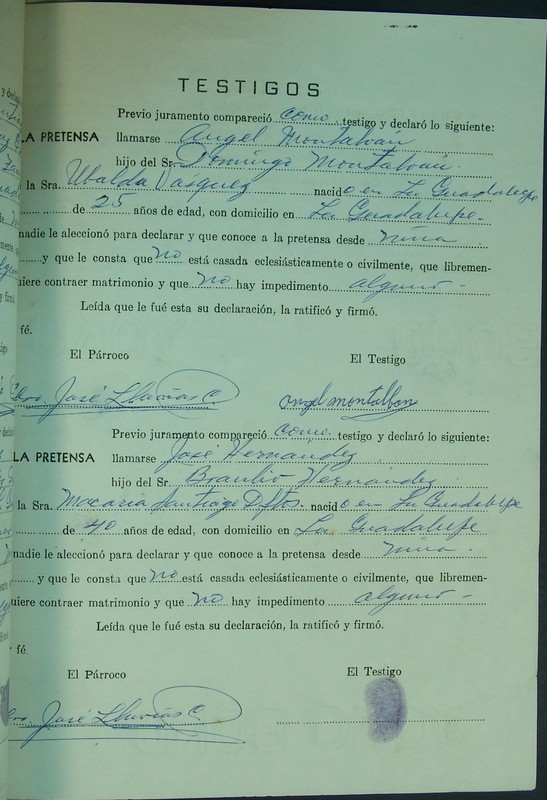 TESTIGOS
Previo juramento compareció como testigo y declaró lo siguiente:
LA PRETENSA llamarse Angel Montalván
hijo del Sr. Domingo Montalván.
la Sra. Ubalda Vasquez nacido en La Guadalupe
de 25 años de edad, con domicilio en La Guadalupe-
nadie le aleccionó para declarar y que conoce a la pretensa desde niña
y que le consta que no está casada eclesiásticamente o civilmente, que libremen-
uiere contraer matrimonio y que no hay impedimento alguno -
Leída que le fué esta su declaración, la ratificó y firmó.
fé.
El Párroco El Testigo
José Lluvias C. angel montalban
Previo juramento compareció como testigo y declaró lo siguiente:
LA PRETENSA llamarse José Hernández
hijo del Sr. Braulio Hernández
la Sra. Macaria Santiago D Stos. nacido en La Guadalupe
de 40 años de edad, con domicilio en La Guadalupe
nadie le aleccionó para declarar y que conoce a la pretensa desde niña.
y que le consta que no está casada eclesiásticamente o civilmente, que libremen-
uiere contraer matrimonio y que no hay impedimento alguno -
Leída que le fué esta su declaración, la ratificó y firmó.
fé.
El Párroco El Testigo
José Lluvias C.